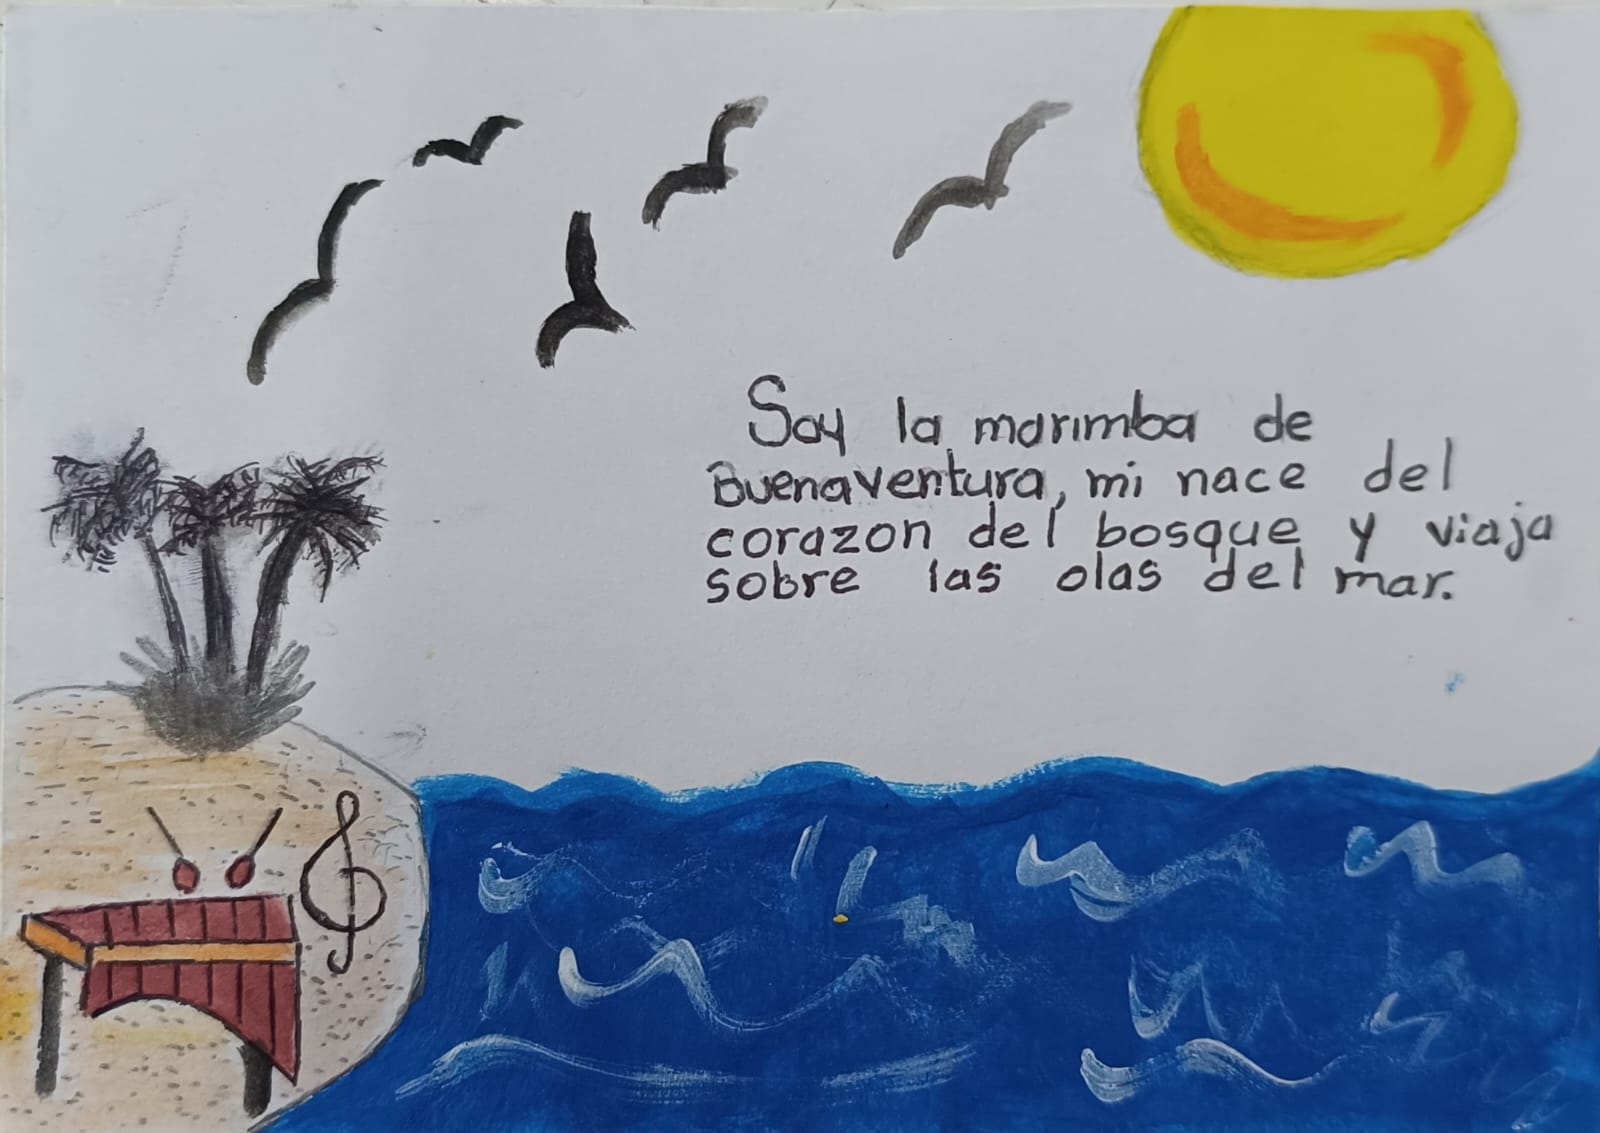 Soy la marimba de
Buenaventura, mi nace del
corazon del bosque y viaja
sobre las olas del mar.